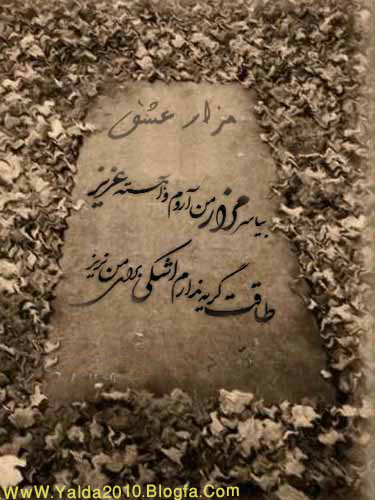 مزار عشق
بیا سر مزار من آروم و آهسته عزیز
طاقت گریه ندارم اشکی برای من نریز
WwW.Yalda2010.Blogfa.Com